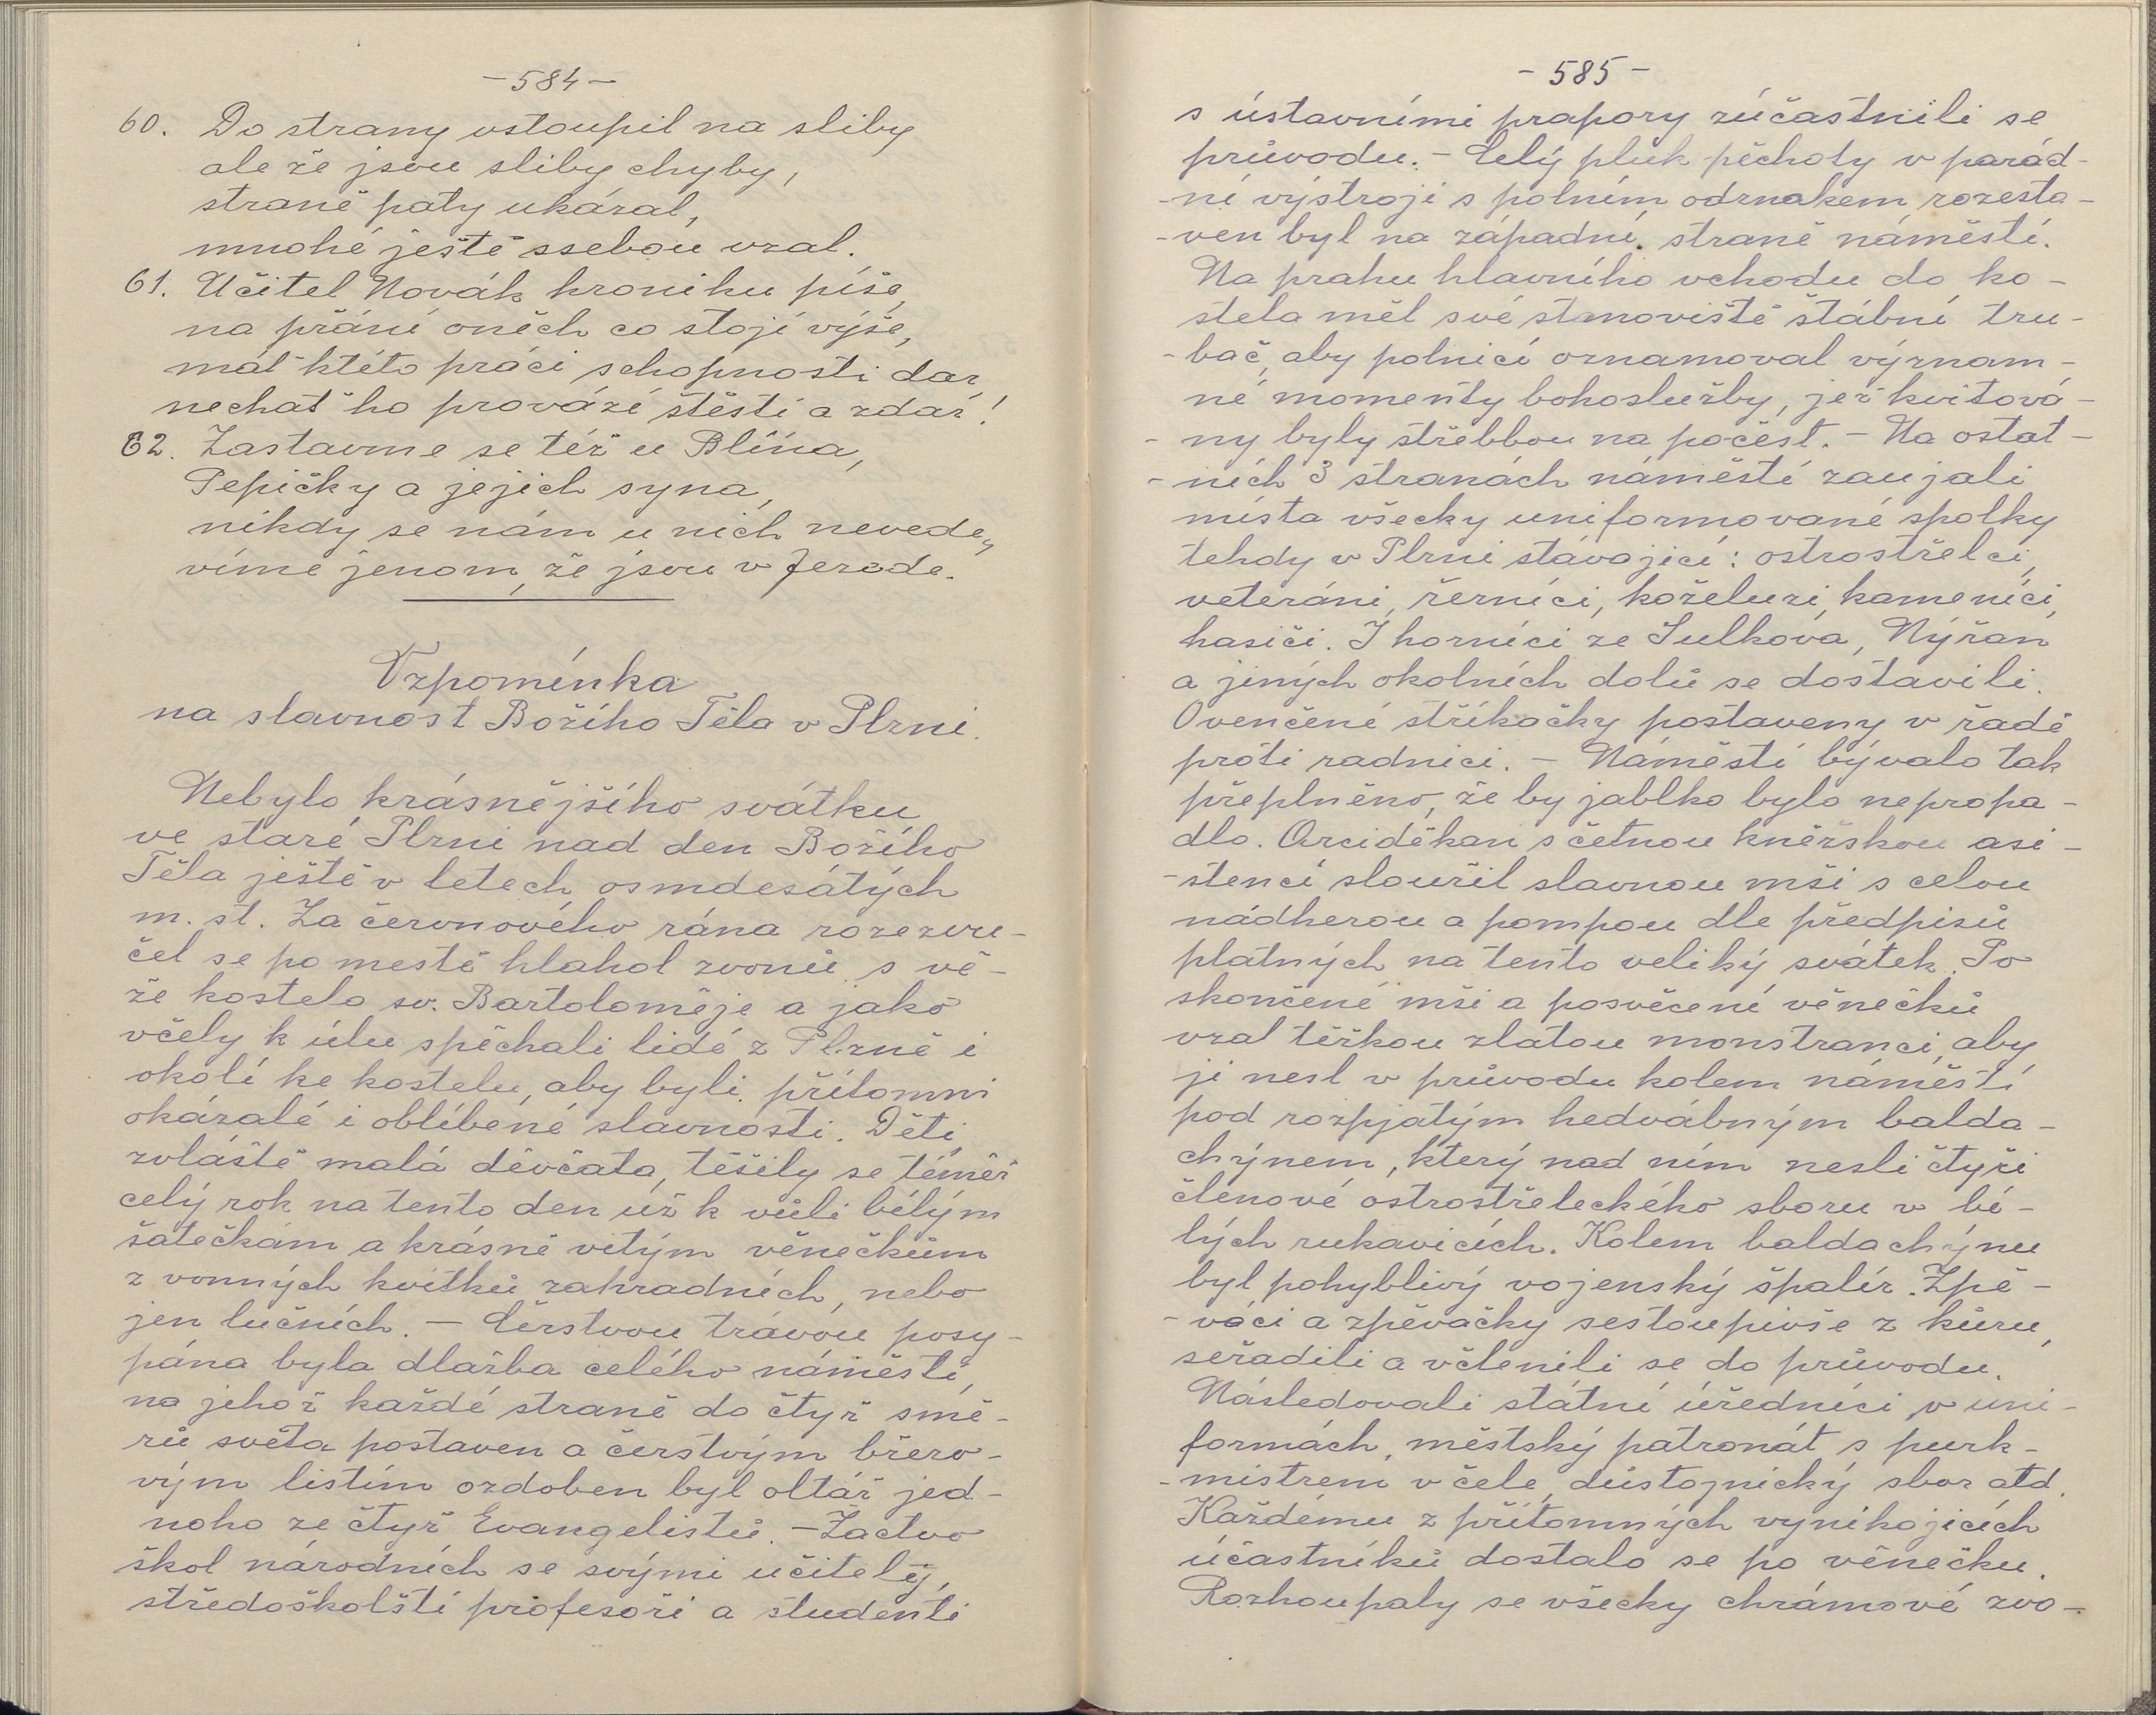 - 584 -
60. Do strany vstoupil na sliby
ale že jsou sliby chyby,
straně paty ukázal,
mnohé ještě ssebou vzal.
61. Učitel Novák kroniku píše,
na přání oněch co stojí výše,
máť ktéto práci schopnosti dar
nechať ho provází štěstí a zdar!
62. Zastavme se též u Blína,
Pepičky a jejich syna,
nikdy se nám u nich nevede,
víme jenom, že jsou v
Vzpomínka
na slavnost Božího Těla v Plzni.
Nebylo krásnějšího svátku
ve staré Plzni nad den Božího
Těla ještě v letech osmdesátých
m. st. Za červnového rána rozezvu-
čel se po mestě hlahol zvonů s vě-
že kostela sv. Bartoloměje a jako
včely k úlu spěchali lidé z Plzně i
okolí ke kostelu, aby byli přítomni
okázalé i oblíbené slavnosti. Děti,
zvláště malá děvčata, těšily se téměř
celý rok na tento den už k vůli bílým
šatečkám a krásně vitým věnečkům
z vonných kvítků zahradních, nebo
jen lučních. - Čerstvou trávou posy-
pána byla dlažba celého náměstí,
na jehož každé straně do čtyř smě-
rů světa postaven a čerstvým březo-
vým listím ozdoben byl oltář jed-
noho ze čtyř Evangelistů. - Žactvo
škol národních se svými učitely,
středoškolští profesoři a studenti
- 585 -
s ústavními prapory zúčastnili se
průvodu. - Celý pluk pěchoty v parád-
-ní výstroji s polním odznakem rozesta-
-ven byl na západní straně náměstí.
Na prahu hlavního vchodu do ko-
stela měl své stanoviště štábní tru-
-bač, aby polnicí oznamoval význam-
né momenty bohoslužby, jež kvitová-
- ny byly střelbou na počest. - Na ostat-
- ních 3 stranách náměstí zaujali
místa všecky uniformované spolky
tehdy v Plzni stávající: ostrostřelci,
veteráni, řezníci, koželuzi, kameníci,
hasiči. I horníci ze Sulkova, Nýřan
a jiných okolních dolů se dostavili.
Ovenčené stříkačky postaveny v řadě
proti radnici. - Náměstí bývalo tak
přeplněno, že by jablko bylo nepropa-
dlo. Arciděkan s četnou kněžskou asi-
-stencí sloužil slavnou mši s celou
nádherou a pompou dle předpisů
platných na tento veliký svátek. Po
skončené mši a posvěcení věnečků
vzal těžkou zlatou monstranci, aby
ji nesl v průvodu kolem náměstí
pod rozpjatým hedvábným balda-
chýnem, který nad ním nesli čtyři
členové ostrostřeleckého sboru v bí-
lých rukavicích. Kolem baldachýnu
byl pohyblivý vojenský špalír. Zpě-
- váci a zpěvačky sestoupivše z kůru,
seřadili a včlenili se do průvodu.
Následovali státní úředníci v uni-
formách, městský patronát s purk-
-mistrem v čele, důstojnický sbor atd.
Každému z přítomných vynikajících
účastníků dostalo se po věnečku.
Rozhoupaly se všecky chrámové zvo-